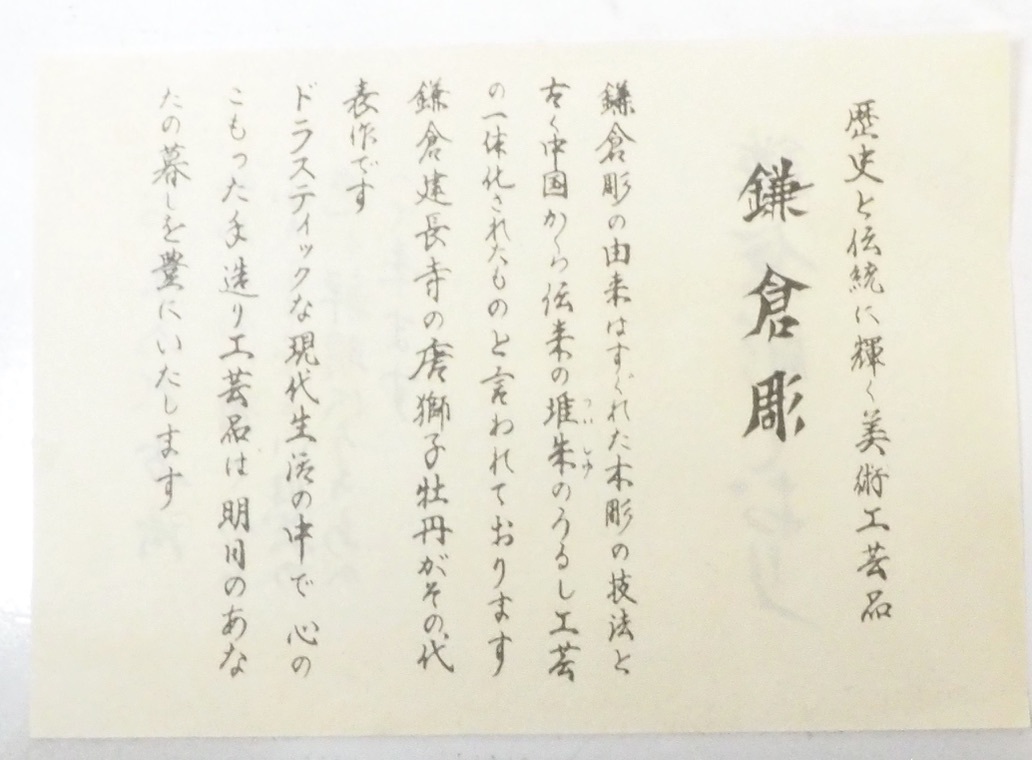 歴史と伝統に輝く美術工芸品
鎌倉彫
鎌倉彫の由来はすぐれた木彫の技法と
古く中国から伝来の堆朱のうるし工芸
ついしゅ
の一体化されたものと言われております
鎌倉建長寺の唐獅子牡丹がその代
表作です
ドラスティックな現代生活の中で 心の
こもった手造り工芸品は 明日のあな
たの暮しを豊にいたします